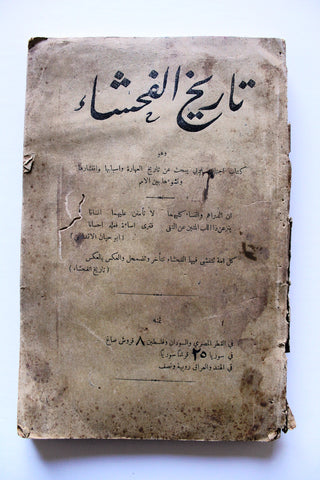 تاريخ الفحشاء
وهو
كتاب يبحث عن تاريخ العهارة واسبابها وانتشارها
ونشوءها بين الامم
ان الدراهم والنساء كليهما لا تأمنن عليهما انسانا
ينزعن ذا اللب المتين عن التقى فترى اساءة فعله احسانا
(ابو حيان الاندلسي)
كل امة تتفشى فيها الفحشاء تتأخر وتضمحل والعكس بالعكس
(تاريخ الفحشاء)
ثمنه
في القطر المصري والسودان وفلسطين ٨ قروش صاغ
في سوريا ٢٥ قرشا سوريا
في الهند والعراق روبية ونصف